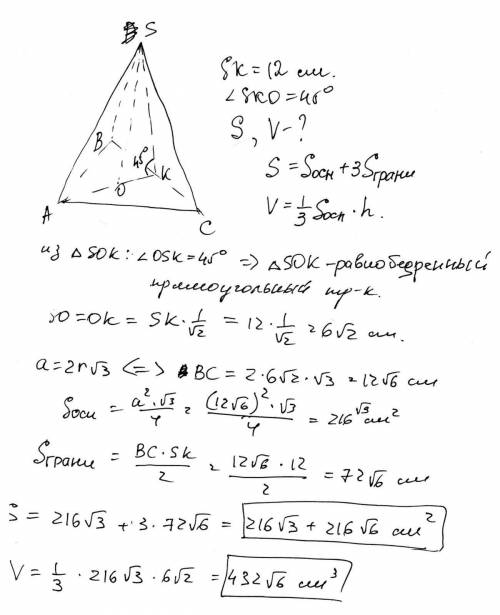 S
SK = 12 см.
∠SKO = 45°
S, V - ?
S = Sосн + 3Sграни
V = 1/3 Sосн · h.
B
45°
K
O
A
C
из △SOK: ∠OSK = 45° => △SOK - равнобедренный
прямоугольный тр-к.
SO = OK = SK · 1/√2 = 12 · 1/√2 = 6√2 см.
a = 2r√3 <=> BC = 2 · 6√2 · √3 = 12√6 см
Sосн = a²·√3/4 = (12√6)²·√3/4 = 216√3 см²
Sграни = BC · SK/2 = 12√6 · 12/2 = 72√6 см
S = 216√3 + 3 · 72√6 = 216√3 + 216√6 см²
V = 1/3 · 216√3 · 6√2 = 432√6 см³